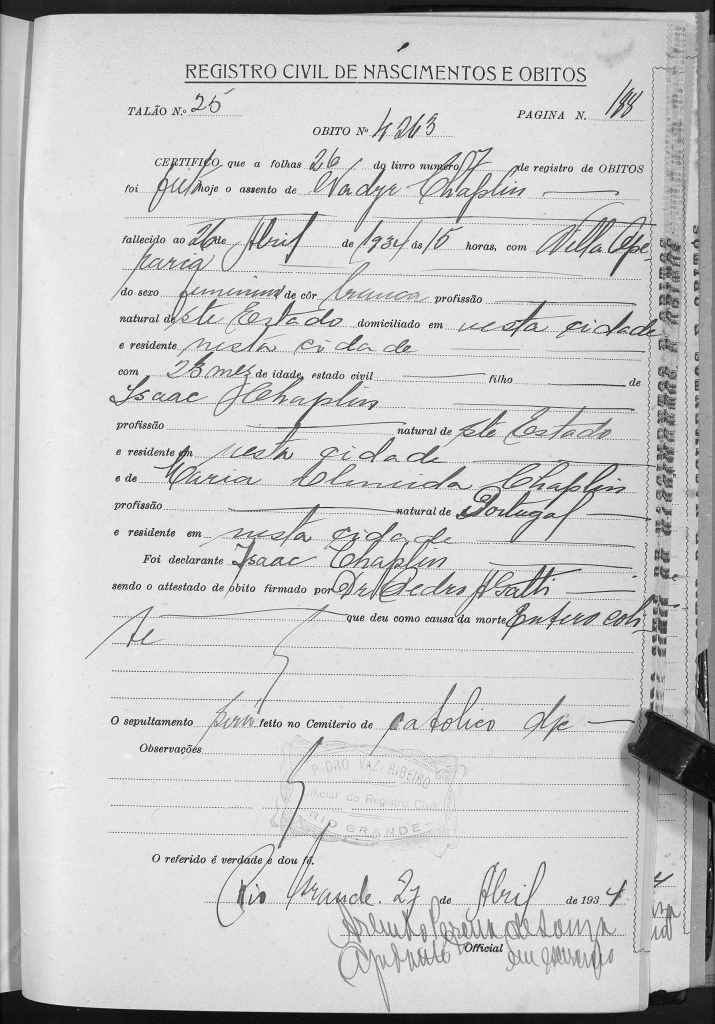 REGISTRO CIVIL DE NASCIMENTOS E OBITOS
TALÃO N.º 25 PAGINA N. 188
OBITO Nº 4263
CERTIFICO que a folhas 26 do livro numero 7 de registro de OBITOS
foi feito hoje o assento de Nadyr Chaplin
fallecido ao 26 de Abril de 1934 ás 15 horas, com Villa Ope-
raria
do sexo feminino de côr branca profissão
natural deste Estado domiciliado em nesta cidade
e residente nesta cidade
com 23 mez de idade, estado civil filho de
Isaac Chaplin
profissão natural deste Estado
e residente em nesta cidade
e de Maria Almeida Chaplin
profissão natural de Portugal
e residente em nesta cidade
Foi declarante Isaac Chaplin
sendo o attestado de obito firmado por Dr. Pedro Gatti
que deu como causa da morte Entero coli-
te
O sepultamento será feito no Cemiterio de catolico dpc
Observações
PEDRO VAZ RIBEIRO
Official do Registro Civil
RIO GRANDE
O referido é verdade e dou fé.
Rio Grande 27 de Abril de 1934
Pereira de Souza
Ajudante Official em exercicio